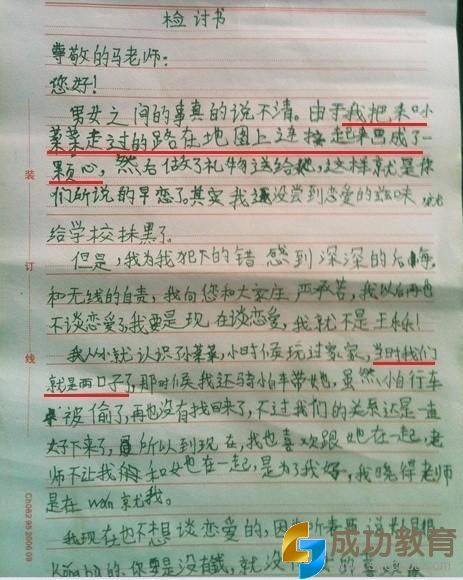 检讨书
尊敬的马老师:
您好!
男女之间的事真的说不清。由于我把和小
菜菜走过的路在地图上连接起来画成了一
颗心,然后做了礼物送给她,这样就是你
们所说的早恋了。其实我还没尝到恋爱的滋味,就
给学校抹黑了。
但是,我为我犯下的错感到深深的后悔
和无线的自责,我向您和大家庄严承若,我以后再也
不谈恋爱了,我要是现在谈恋爱,我就不是王
我从小就认识孙菜菜,小时候玩过家家,当时我们
就是两口子了,那时候我还骑小白车带她,虽然小白行车
被偷了,再也没有找回来了,不过我们的关系还是一直
好下来了,所以到现在,我也喜欢跟她在一起,老
师不让我和她在一起,是为了我好,我晓得老师
是在wǎn京尤我。
我现在也不想谈恋爱的,因为
的,你要是没有钱,就没
装
订
线
成功教育